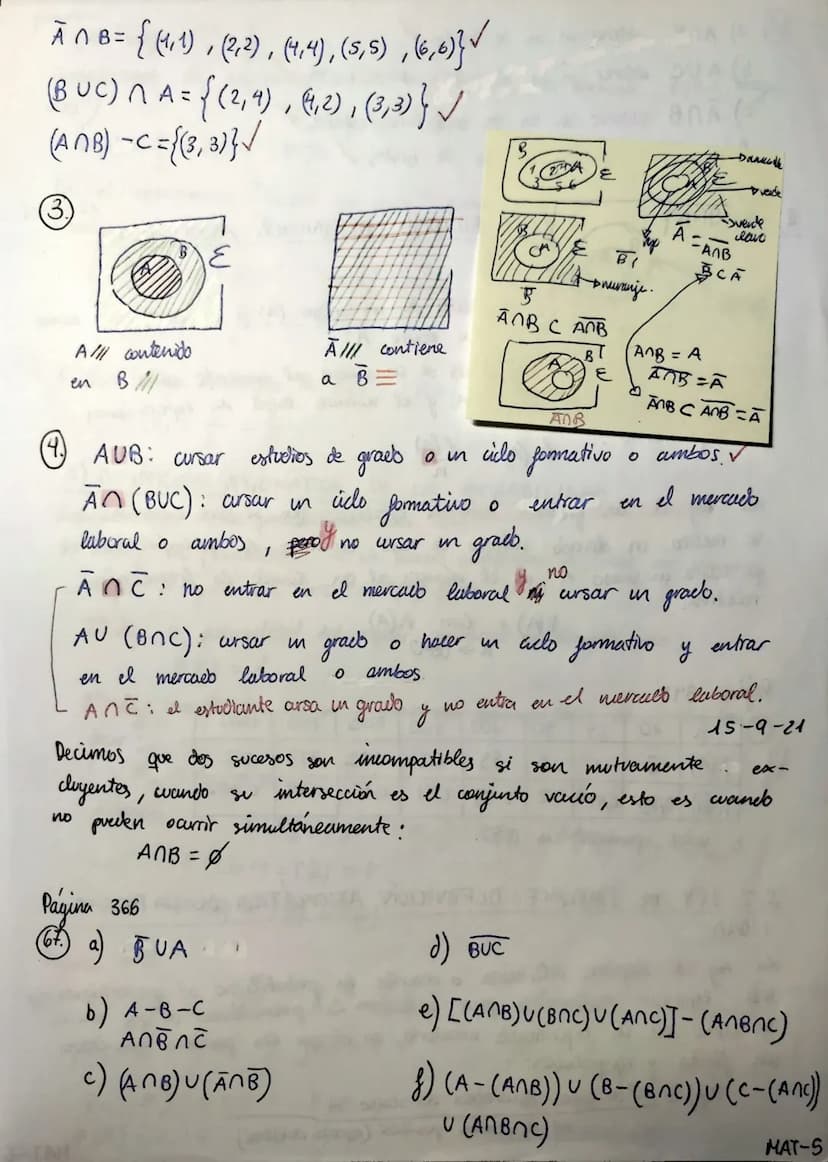 Ā ∩ B = { (1,1) , (2,2) , (4,4) , (5,5) , (6,6)} ✓
(B ∪ C) ∩ A = { (2,4) , (4,2) , (3,3) } ✓
(A ∩ B) - C = {(3,3)} ✓
3.
A B Ɛ
A /// contenido
en B ///
Ā /// contiene
a B̅ ☰
B 1 2 A
3 5 6 Ɛ
B A Ɛ
B̅
naranja.
Ā∩B ⊂ A̅∩̅B̅
A B Ɛ
A̅∩̅B̅
Ɛ
verde
verde
claro
Ā = A̅∩̅B̅
B̅ ⊂ Ā
A∩B = A
A̅∩̅B̅ = Ā
Ā∩B ⊂ A̅∩̅B̅ = Ā
4. A∪B: cursar estudios de grado o un ciclo formativo o ambos. ✓
Ā ∩ (B∪C): cursar un ciclo formativo o entrar en el mercado
laboral o ambos, y no cursar un grado.
Ā ∩ C̅ : no entrar en el mercado laboral y no cursar un grado.
A∪ (B∩C): cursar un grado o hacer un ciclo formativo y entrar
en el mercado laboral o ambos
A ∩ C̅ : el estudiante cursa un grado y no entra en el mercado laboral.
15-9-21
Decimos que dos sucesos son incompatibles si son mutuamente ex-
cluyentes, cuando su intersección es el conjunto vacío, esto es cuando
no pueden ocurrir simultáneamente:
A∩B = ∅
Página 366
67. a) B̅ ∪ A
b) A-B-C
A∩B̅∩C̅
c) (A∩B)∪(Ā∩B̅)
d) B̅∪̅C̅
e) [(A∩B)∪(B∩C)∪(A∩C)] - (A∩B∩C)
f) (A-(A∩B)) ∪ (B-(B∩C)) ∪ (C-(A∩C))
∪ (A∩B∩C)
MAT-5